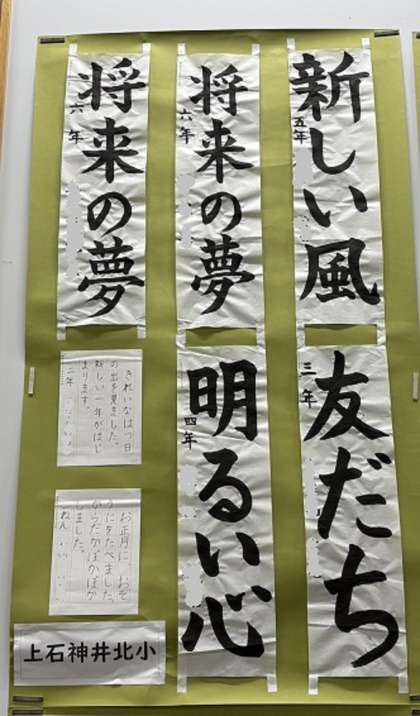 新しい風
五年
友だち
三年
将来の夢
六年
明るい心
四年
将来の夢
六年
きれいなはつ日
の出を見ました。
新しい一年がはじ
まります。
二年
お正月に、おぞ
うにをたべました。
からだがぽかぽか
しました。
ねん
上石神井北小